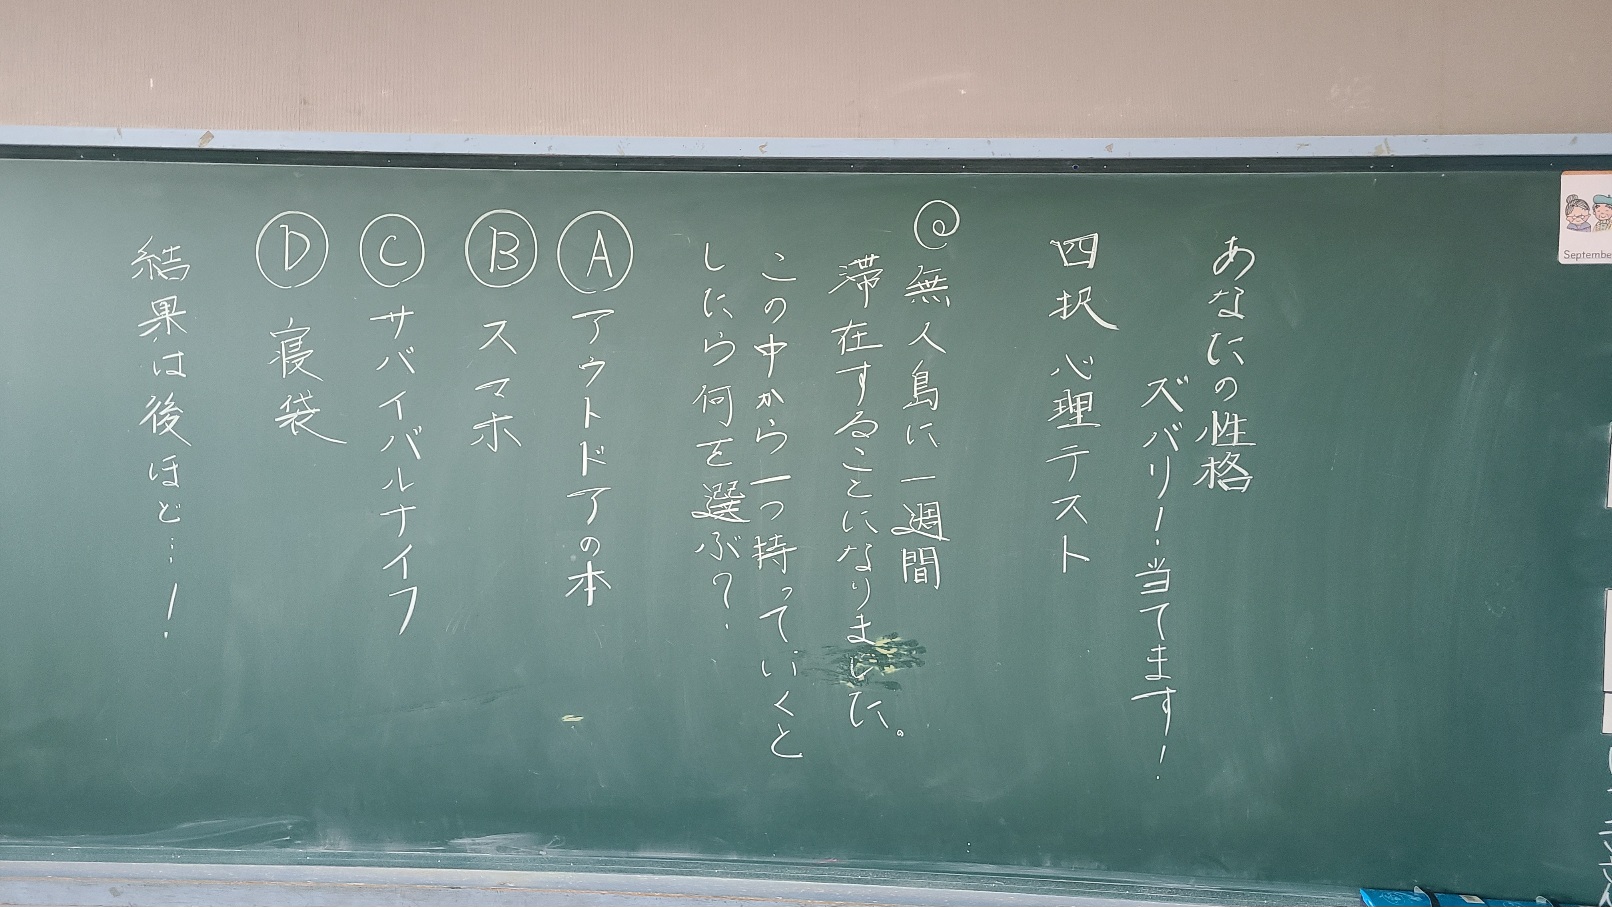 あなたの性格
ズバリ！当てます！
四択 心理テスト
@無人島に一週間
滞在することになりました。
この中から一つ持っていくと
したら何を選ぶ？
Ⓐ アウトドアの本
Ⓑ スマホ
Ⓒ サバイバルナイフ
Ⓓ 寝袋
結果は後ほど…！